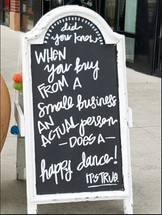 did
you know
WHEN
you buy
FROM A
small business
AN
ACTUAL person
DOES A
happy dance!
IT'S TRUE.